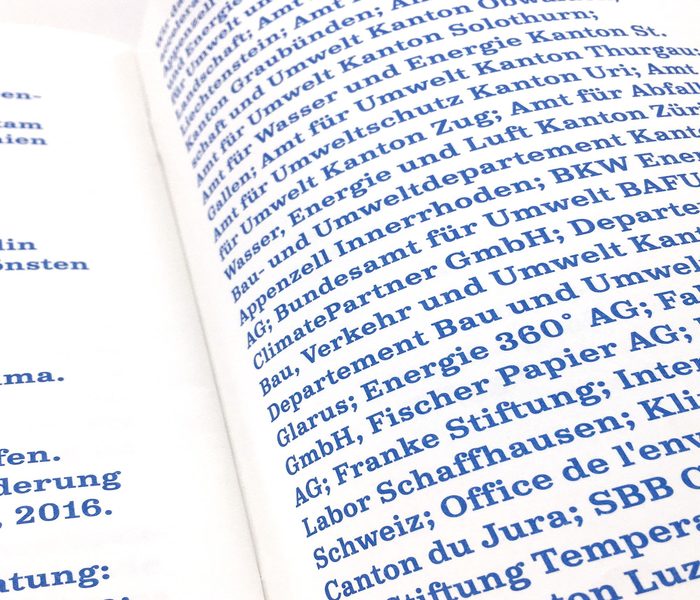 en-
kam
nien
lin
önsten
ima.
fen.
derung
, 2016.
atung:
Appenzell
für Energie un
Landschaft; Amt
Liechtenstein; Amt
Kanton Graubünden; Am
schaft und Umwelt Kanton Obwalden,
Amt für Umwelt Kanton Solothurn;
Amt für Wasser und Energie Kanton St.
Gallen; Amt für Umwelt Kanton Thurgau;
Amt für Umweltschutz Kanton Uri; Amt
für Umwelt Kanton Zug; Amt für Abfall
Wasser, Energie und Luft Kanton Züri
Bau- und Umweltdepartement Kant
Appenzell Innerrhoden; BKW Ener
AG; Bundesamt für Umwelt BAFU
ClimatePartner GmbH; Departe
Bau, Verkehr und Umwelt Kan
Departement Bau und Umwel
Glarus; Energie 360° AG; Fal
GmbH, Fischer Papier AG;
AG; Franke Stiftung; Inter
Labor Schaffhausen; Kli
Schweiz; Office de l'env
Canton du Jura; SBB C
Stiftung Tempera
ton Luz